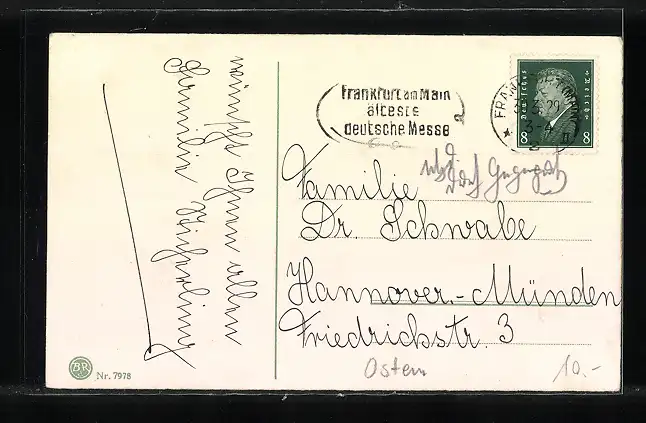 wünscht Ihnen allen
Familie
Frankfurt am Main
älteste
deutsche Messe
Deutsches Reich
8 8
Familie
Dr. Schwabe
Hannover.-Münden
Friedrichstr. 3
Ostern
10.-
BR
Nr. 7978